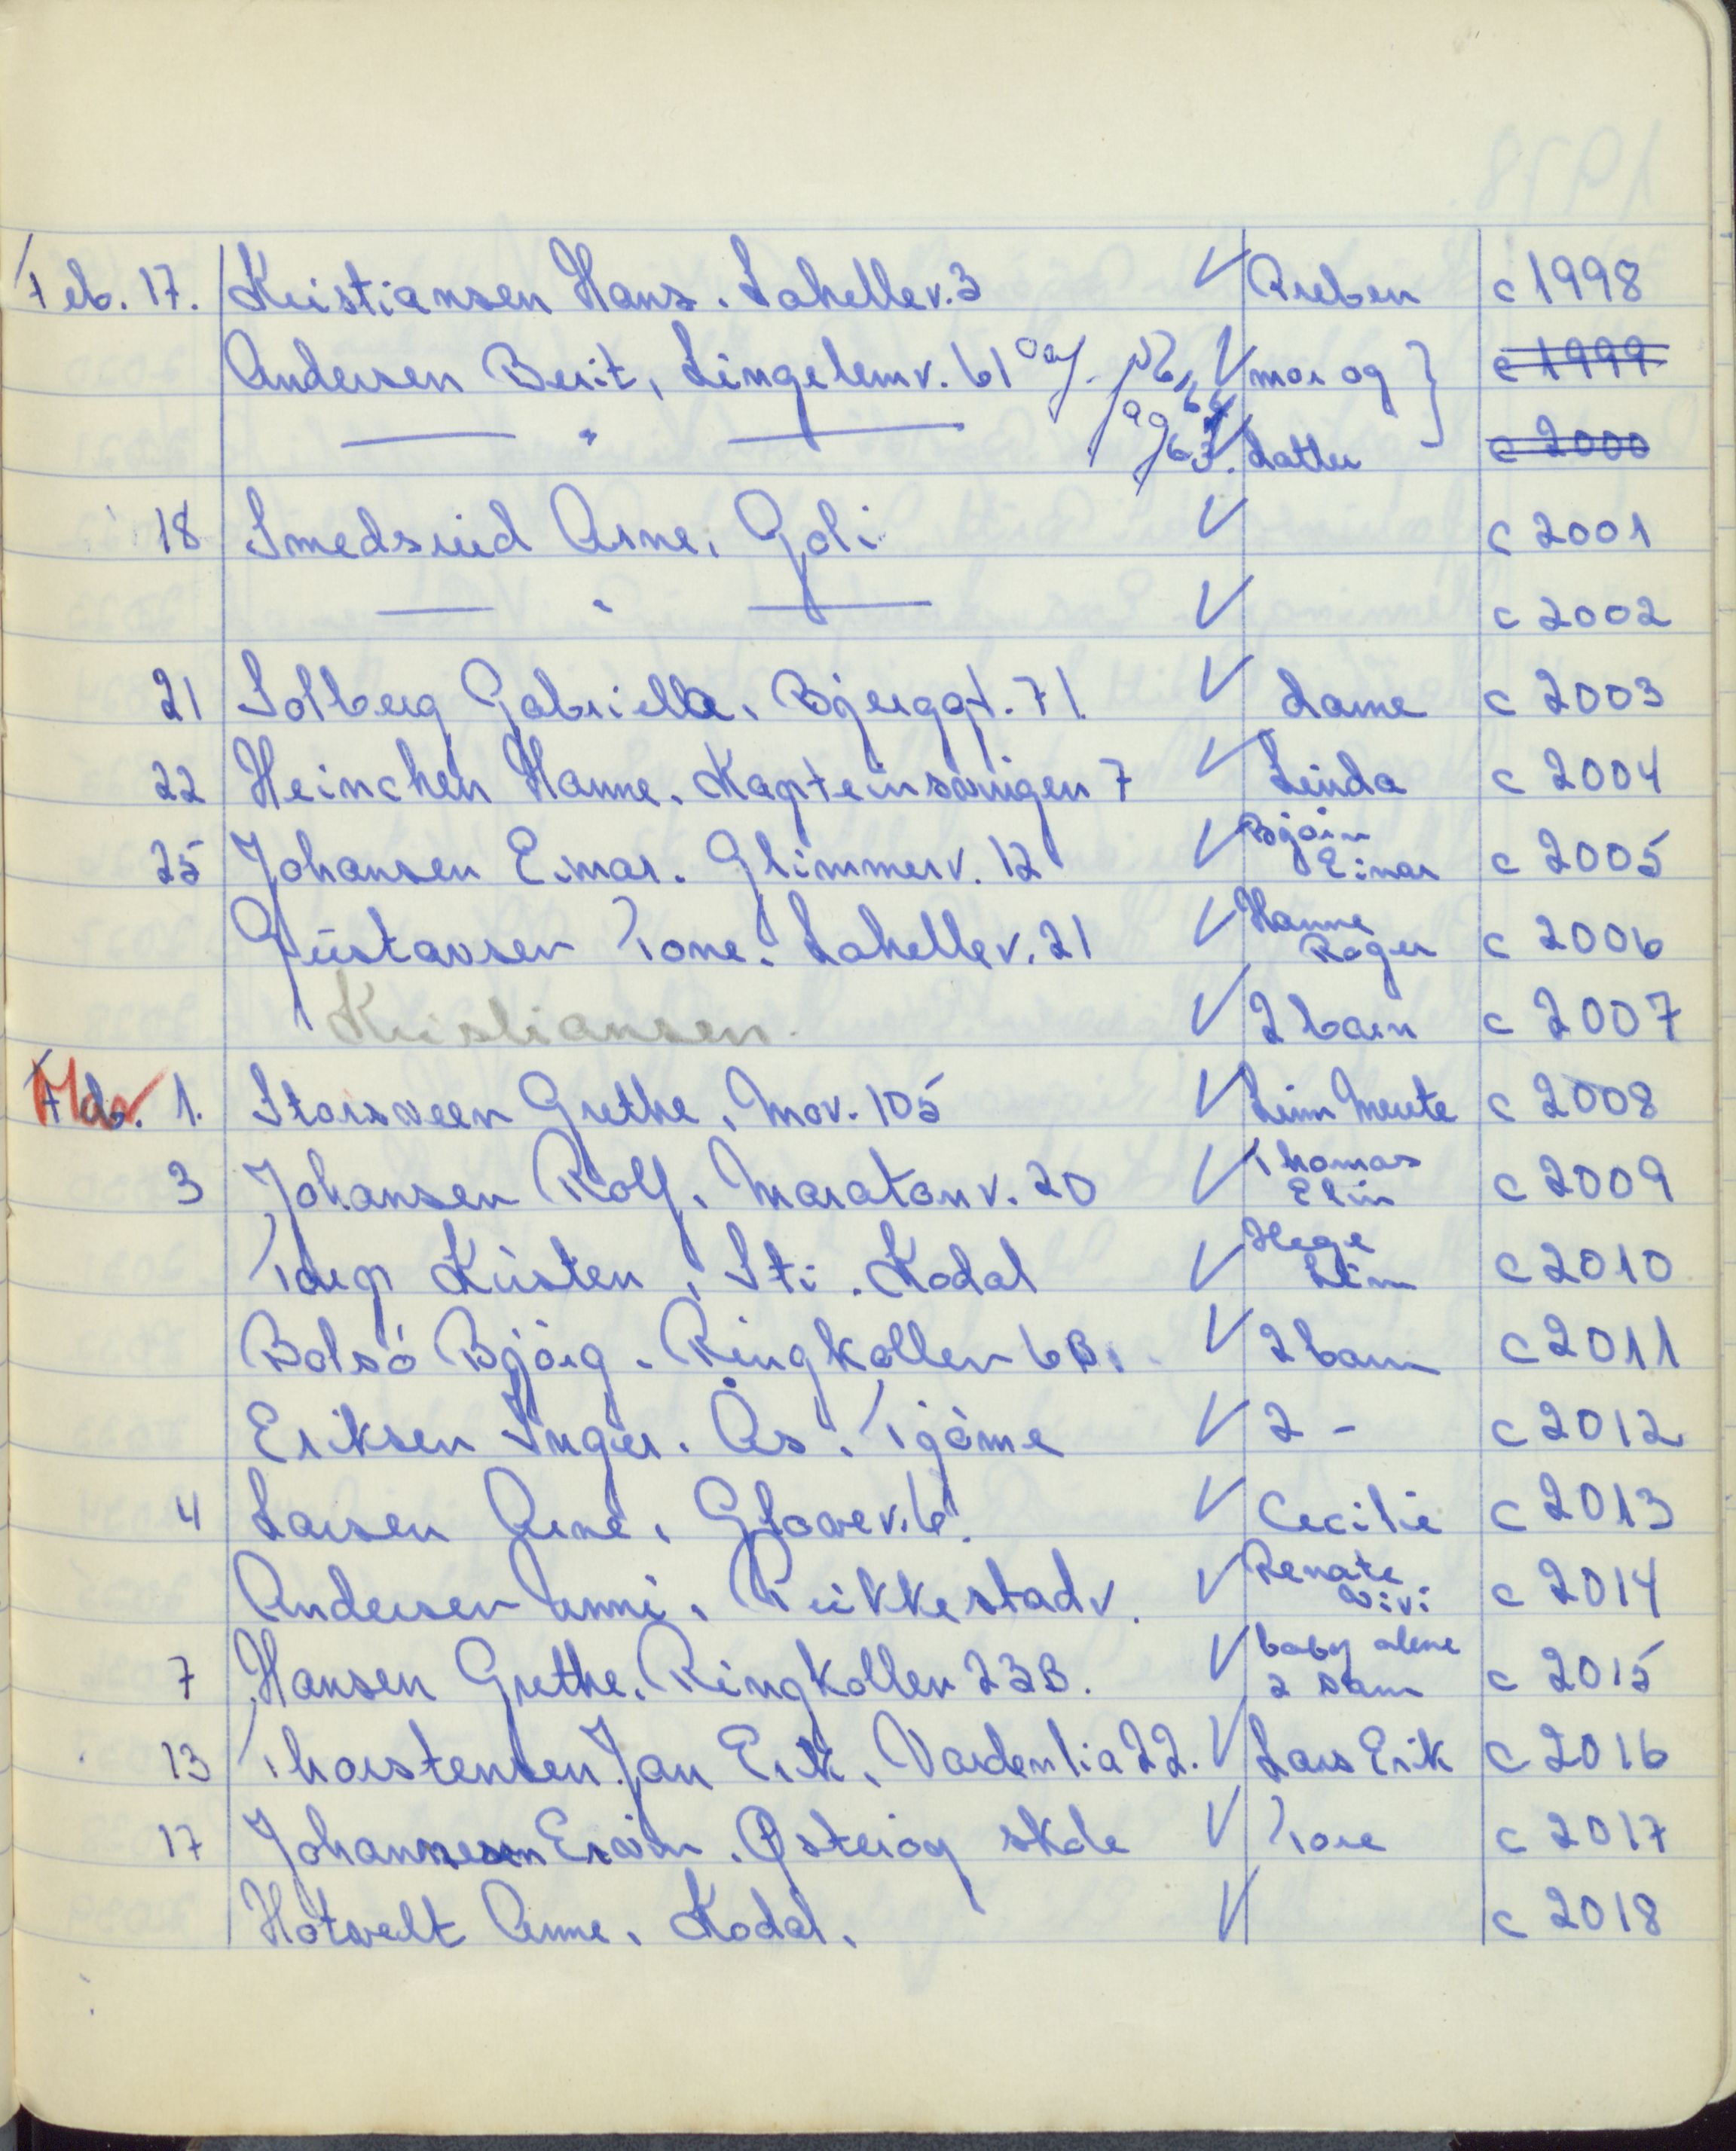 Feb. 17. Kristiansen Hans. Lahellev. 3 ✓ Preben c 1998
Andersen Berit, Lingelemv. 61 ✓ mor og } c 1999
— " — 63. ✓ datter c 2000
18 Smedsrud Arne, Goli ✓ c 2001
— " — ✓ c 2002
21 Solberg Gabriella, Bjerggt. 71. ✓ Lame c 2003
22 Heinchen Hanne. Kapteinsvingen 7 ✓ Linda c 2004
25 Johansen Einar. Glimmerv. 12 ✓ Bjørn Einar c 2005
Gustavsen Tone. Lahellev. 21 ✓ Hanne Roger c 2006
Kristiansen. ✓ 2 barn c 2007
Mar. 1. Storsveen Grethe, Mov. 105 ✓ Linn Merete c 2008
3 Johansen Rolf, Maratonv. 20 ✓ Thomas Elin c 2009
Torp Kirsten, Sti. Kodal ✓ Hege c 2010
Bolsö Björg. Ringkollen 6B. ✓ 2 barn c 2011
Eriksen Inger. Ås. Tjöme ✓ 2 - c 2012
4 Larsen Arne, Gloarev. 6. ✓ Cecilie c 2013
Andersen Anni, Rukkestadv. ✓ Renate Vivi c 2014
7 Hansen Grethe. Ringkollen 23B. ✓ baby alene 2 sam c 2015
13 Thorstensen Jan Erik, Vardenlia 22. ✓ Lars Erik c 2016
17 Johannesen Ervin. Østerøy skole ✓ Tore c 2017
Hotvelt Anne, Kodal. ✓ c 2018